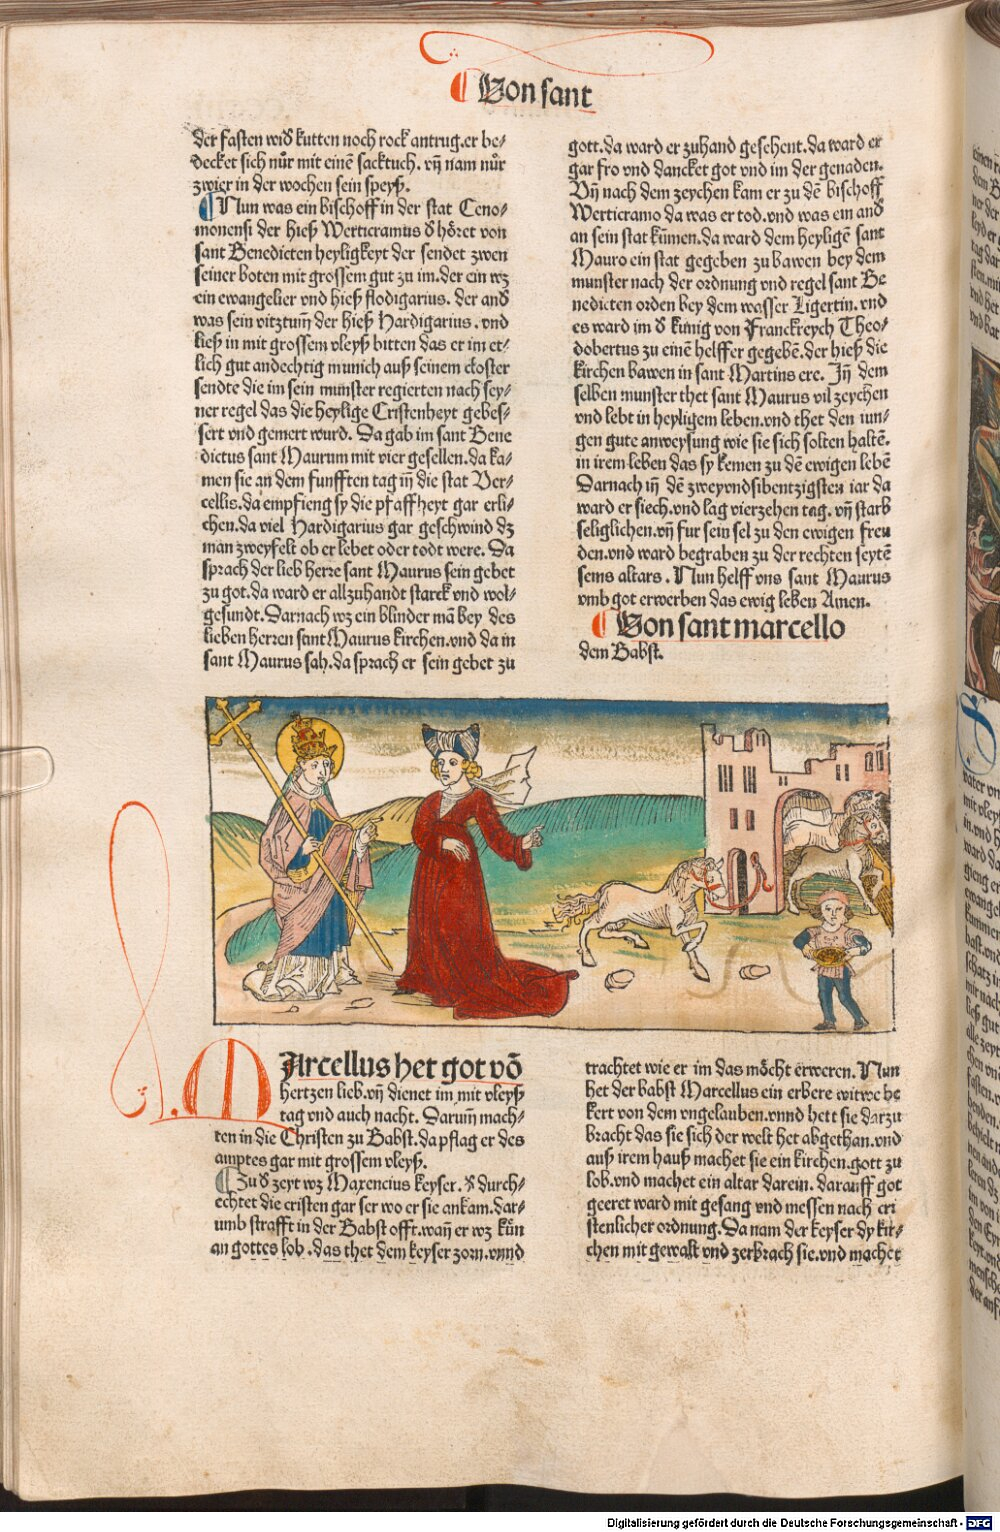 Von sant
der fasten wid kutten noch rock antrug. er be⸗
decket sich nůr mit einē sacktuch. vn̄ nam nůr
zwier in der wochen sein speyß.
Nun was ein bischoff in der stat Ceno⸗
monensi der hieß Werticramus d hŏret von
sant Benedicten heyligkeyt der sendet zwen
seiner boten mit grossem gut zu im. der ein wz
ein ewangelier vnd hieß flodigarius. der and
was sein vitztum̄ der hieß Hardigarius. vnd
ließ in mit grossem vleyß bitten das er im et⸗
lich gut andechtig munich auß seinem closter
sendte die im sein munster regierten nach sey⸗
ner regel das die heylige Cristenheyt gebes⸗
sert vnd gemert wurd. Da gab im sant Bene
dictus sant Maurum mit vier gesellen. da ka⸗
men sie an dem funfften tag in̄ die stat Ver⸗
cellis. da empfieng sy die pfaffheyt gar erli⸗
chen. da viel Hardigarius gar geschwind dz
man zweyfelt ob er lebet oder todt were. Da
sprach der lieb herre sant Maurus sein gebet
zu got. da ward er allzuhandt starck vnd wol⸗
gesundt. Darnach wz ein blinder mā bey des
lieben herren sant Maurus kirchen. vnd da in
sant Maurus sah. da sprach er sein gebet zu
gott. da ward er zuhand gesehent. da ward er
gar fro vnd dancket got vnd im der genaden.
Vn̄ nach dem zeychen kam er zu dē bischoff
Werticramo da was er tod. vnd was ein and
an sein stat kūmen. da ward dem heyligē sant
Mauro ein stat gegeben zu bawen bey dem
munster nach der ordnung vnd regel sant Be
nedicten orden bey dem wasser Ligertin. vnd
es ward im d kunig von Franckreych Theo⸗
dobertus zu einē helffer gegebē. der hieß die
kirchen bawen in sant Martins ere. In̄ dem
selben munster thet sant Maurus vil zeychen
vnd lebt in heyligem leben. vnd thet den iun⸗
gen gute anweysung wie sie sich solten haltē.
in irem leben das sy kemen zu dē ewigen lebē
Darnach in̄ dē zweyvndsibentzigsten iar da
ward er siech. vnd lag vierzehen tag. vn̄ starb
seliglichen. vn̄ fur sein sel zu den ewigen freu
den. vnd ward begraben zu der rechten seytē
seins altars. Nun helff vns sant Maurus
vmb got erwerben das ewig leben Amen.
Von sant marcello
dem Babst.
MArcellus het got vō
hertzen lieb. vn̄ dienet im mit vleyß
tag vnd auch nacht. Darum̄ mach⸗
ten in die Christen zu Babst. da pflag er des
amptes gar mit grossem vleyß.
Zu d zeyt wz Maxencius keyser. d durch⸗
echtet die cristen gar ser wo er sie ankam. dar⸗
umb strafft in der Babst offt. wan̄ er wz kůn
an gottes lob. das thet dem keyser zorn. vnnd
trachtet wie er im das mŏcht erweren. Nun
het der babst Marcellus ein erbere witwe be
kert von dem vngelauben. vnnd hett sie darzu
bracht das sie sich der welt het abgethan. vnd
auß irem hauß machet sie ein kirchen. gott zu
lob. vnd machet ein altar darein. darauff got
geeret ward mit gesang vnd messen nach cri
stenlicher ordnung. Da nam der keyser dy kir⸗
chen mit gewalt vnd zerbrach sie. vnd machet
Digitalisierung gefördert durch die Deutsche Forschungsgemeinschaft - DFG